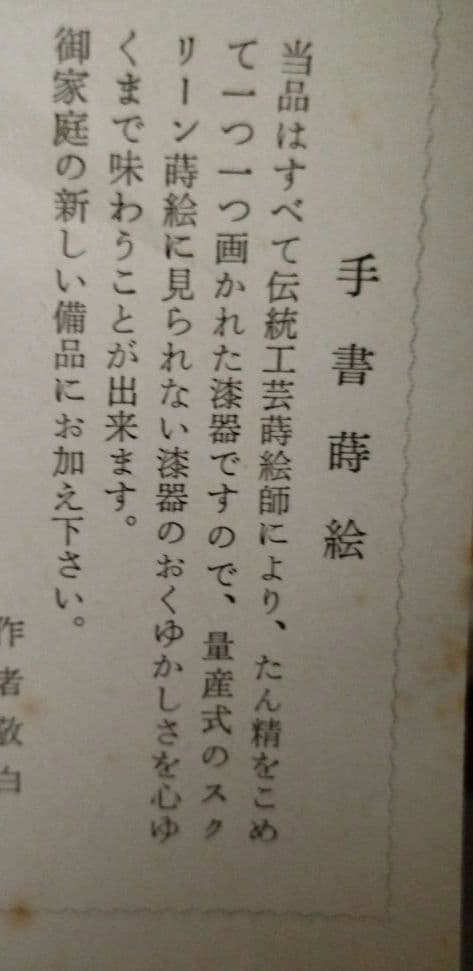 手書蒔絵
当品はすべて伝統工芸蒔絵師により、たん精をこめ
て一つ一つ画かれた漆器ですので、量産式のスク
リーン蒔絵に見られない漆器のおくゆかしさを心ゆ
くまで味わうことが出来ます。
御家庭の新しい備品にお加え下さい。
作者敬白